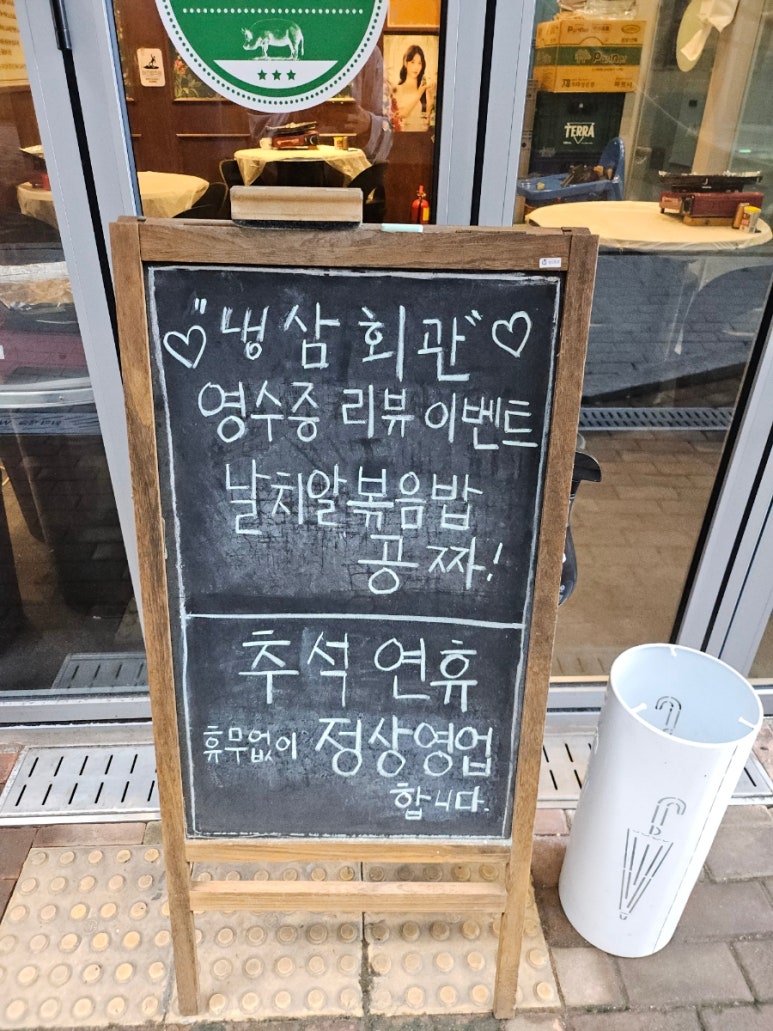 TERRA
♡"냉삼회관"♡
영수증 리뷰 이벤트
날치알볶음밥
공짜!
추석 연휴
휴무없이 정상영업
합니다.